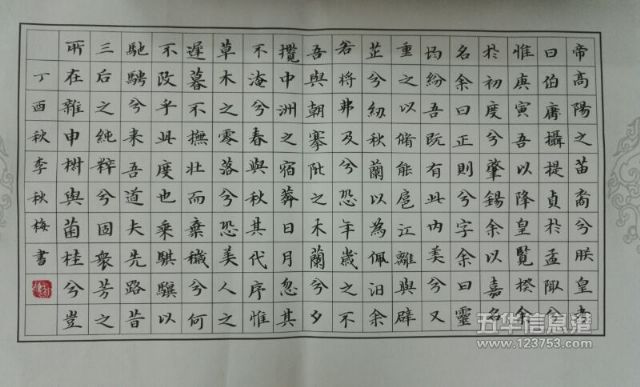 帝高陽之苗裔兮朕皇考
曰伯庸攝提貞於孟陬兮
惟庚寅吾以降皇覽揆余
於初度兮肇錫余以嘉名
名余曰正則兮字余曰靈
均紛吾既有此內美兮又
重之以脩能扈江離與辟
芷兮紉秋蘭以為佩汩余
若將弗及兮恐年歲之不
吾與朝搴阰之木蘭兮夕
攬中洲之宿莽日月忽其
不淹兮春與秋其代序惟
草木之零落兮恐美人之
遲暮不撫壯而棄穢兮何
不改乎此度也乘騏驥以
馳騁兮来吾道夫先路昔
三后之純粹兮固衆芳之
所在雜申樹與菌桂兮豈
丁酉秋李秋梅書
五华信息港
www.123753.com